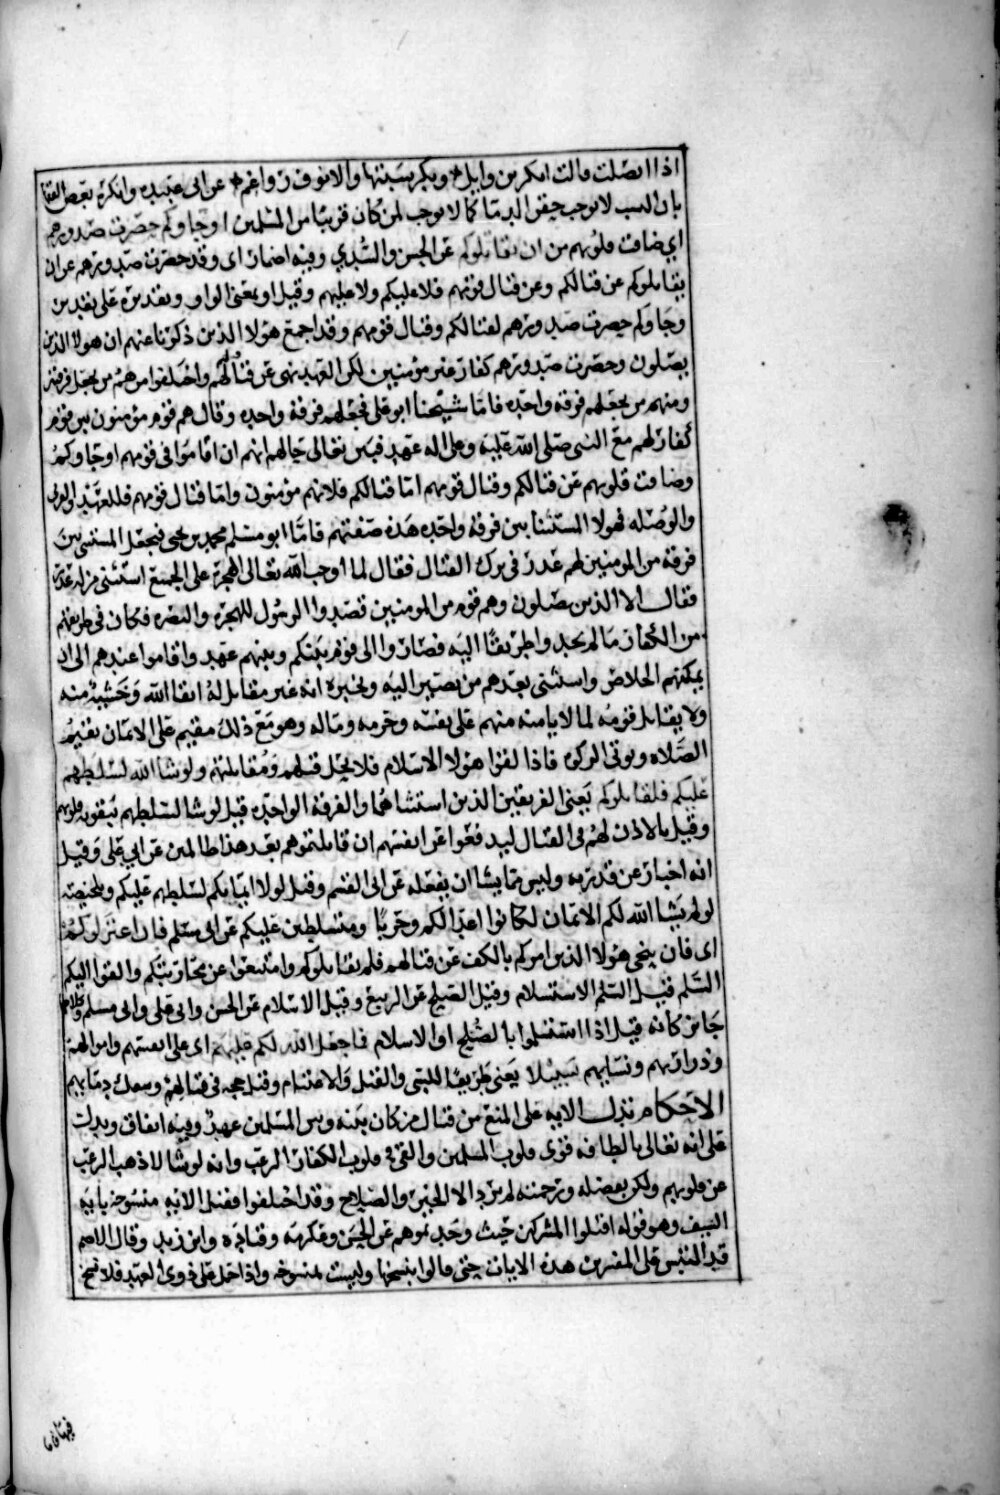 اذا اتصلت قالت ابكر بن وايل وبكر سبتها والانوف رواغم عن ابى عبيده وانكره بعض الفقها
بان النسب لا يوجب حقن الدما كما لا يوجب لمن كان قريبا من المسلمين او جاوكم حصرت صدورهم
اى ضاقت قلوبهم من ان يقاتلوكم عن الحسن والسدي وفيه اضمار اى وقد حصرت صدورهم عن ان
يقاتلوكم عن قتالكم وعن قتال قومهم فلا عليكم ولا عليهم وقيل او بمعنى الواو وتقديره على تقدير
وجاوكم حصرت صدورهم لقتالكم وقتال قومهم وقد اجمع هولا الذين ذكرنا عنهم ان هولا الذين
يصلون وحصرت صدورهم كفار غير مومنين لكن العهد نهى عن قتالهم واختلفوا منهم من يجعل فرقه
ومنهم من يجعلهم فرقه واحده فاما شيخنا ابو على فجعلهم فرقة واحده وقال هم قوم مومنون بين قوم
كفار لهم مع النبى صلى الله عليه وعلى اله عهد فبين تعالى حالهم انهم ان اقاموا فى قومهم او جاوكم
وضاقت قلوبهم عن قتالكم وقتال قومهم اما قتالكم فلانهم مومنون واما قتال قومهم فللعهد او القربى
والوصله فهولا المستثنا بين فرقه واحده هذه صفتهم فاما ابو مسلم محمد بن بحر فجعل المستثنى بين
فرقة من المومنين لهم عذر فى ترك القتال فقال لما اوجب الله تعالى الهجرة على الجميع استثنى من له عذر
فقال الا الذين يصلون وهم قوم من المومنين قصدوا الرسول للهجره والنصره فكان فى طريقهم
من الكفار ما لم يجدوا طريقا اليه فصاروا الى قوم بينكم وبينهم عهد واقاموا عندهم الى ان
يمكنهم الخلاص واستثنى بعدهم من يصير اليه ويخبره انه غير مقاتل له اتقا الله وخشية منه
ولا يقاتل قومه لما لا يامنه منهم على نفسه وحرمه وماله وهو مع ذلك مقيم على الايمان يقيم
الصلاه ويوتى الزكوه فاذا لقوا هولا الاسلام فلا يحل قتلهم ومقاتلتهم ولو شا الله لسلطهم
عليكم فلقاتلوكم يعنى الفريقين الذين استثناهما والفرقه الواحده قيل لو شا لسلطهم بتقويه قلوبهم
وقيل بالاذن لهم فى القتال ليدفعوا عن انفسهم ان قاتلتموهم بعد هذا ظالمين عن ابي على وقيل
انه اخبار عن قدرته وليس مما يشا ان يفعله عن ابى القسم وقيل لولا ايمانكم لسلطهم عليكم وتلخيصه
لو لم يشا الله لكم الايمان لكانوا اعدا لكم وحربا ومتسلطين عليكم عن ابى مسلم فان اعتزلوكم
اى فان ينحى هولا الذين امركم بالكف عن قتالهم فلم يقاتلوكم وامتنعوا عن محاربتكم والقوا اليكم
السلم قيل السلم الاستسلام وقيل الصلح عن الربيع وقيل الاسلام عن الحسن وابى على وابى مسلم وكلاهما
جايز كانه قيل اذا استسلموا بالصلح او الاسلام فما جعل الله لكم عليهم اى على انفسهم واموالهم
وذراريهم ونسايهم سبيلا يعنى طريقا للسبى والقتل والاغتنام وقيل حجه فى قتالهم وسفك دمايهم
الاحكام تدل الايه على المنع من قتال من كان بينه وبين المسلمين عهد وفيه اتفاق وتدل
على انه تعالى بالطافه قوى قلوب المسلمين والقى فى قلوب الكفار الرعب وانه لو شا لاذهب الرعب
عن قلوبهم ولكن بفضله ورحمته لم يرد الا الخير والصلاح وقد اختلفوا فقيل الايه منسوخه بايه
السيف وهو قوله اقتلوا المشركين حيث وجدتموهم عن الحسن وعكرمه وقتاده وابن زيد وقال الاصم
قد التبس على المفسرين هذه الايات حتى قالوا بنسخها وليست بمنسوخه واذا حمل على ذوى العهد فلا نسخ